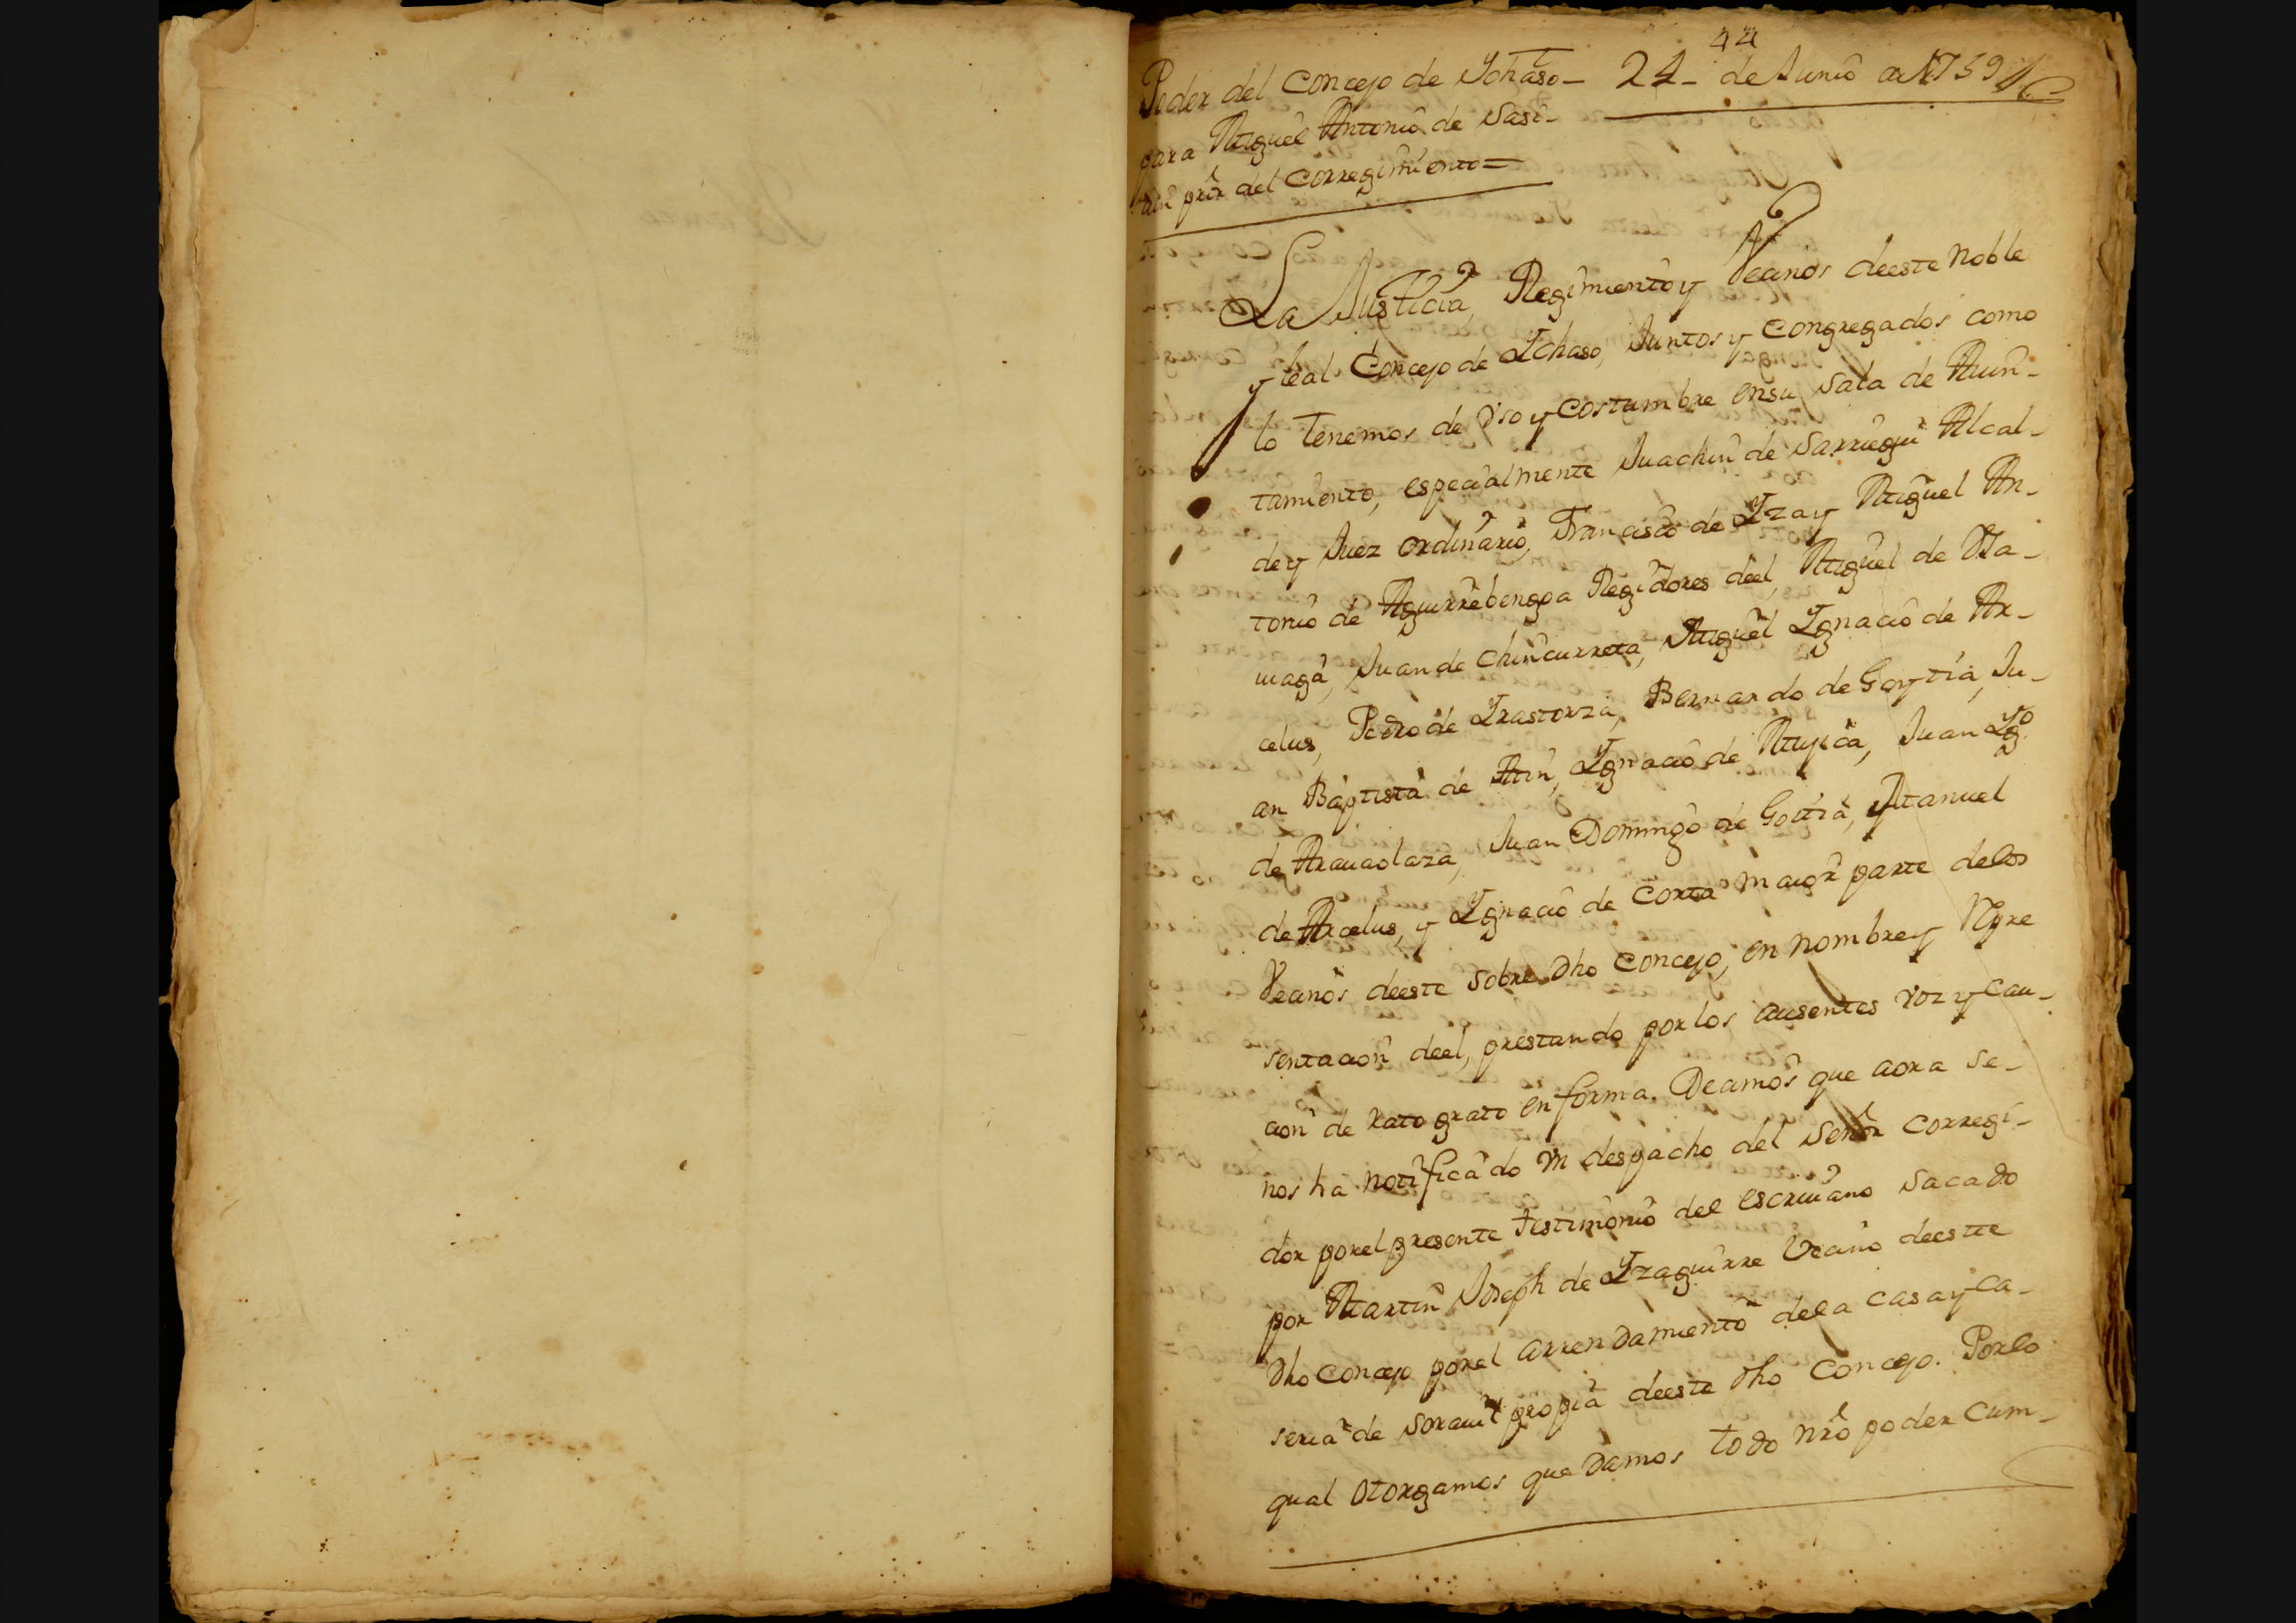 44
Poder del Concejo de Ychaso- 24- de Junio de 1759
para Miguel Antonio de Sasi-
ain pror del Corregimiento=
La Justicia, Regimiento y Vecinos deeste Noble
y leal Concejo de Ychaso, Juntos y Congregados como
lo tenemos de vso y costumbre ensu Sala de Aiun-
tamiento, especialmente Juachin de Sarriegui Alcal-
de y Juez ordinario, Francisco de Yza y Miguel An-
tonio de Aguirrebengoa Regidores deel, Miguel de Ma-
uaga, Juan de Chincurreta, Miguel Ygnacio de Ar-
celus, Pedro de Yrastorza, Bernardo de Goytia, Ju-
an Baptista de Ain, Ygnacio de Muxica, Juan Ygo
de Aramaolaza, Juan Domingo de Goitia, Manuel
de Arcelus, y Ygnacio de Corta maior parte delos
Vecinos deeste sobre dho Concejo, en nombre y Repre
sentacion deel, prestando porlos ausentes voz y cau-
cion de rato grato en forma. Decimos que aora se-
nos ha notificado vn despacho del Señor Corregi-
dor porel presente testimonio del escriuano sacado
por Martin Joseph de Yzaguirre Vecino deeste
dho Concejo porel arrendamiento dela casa y ca-
seria de propia deeste dho Concejo. Porlo
qual otorgamos que damos todo nro poder cum-